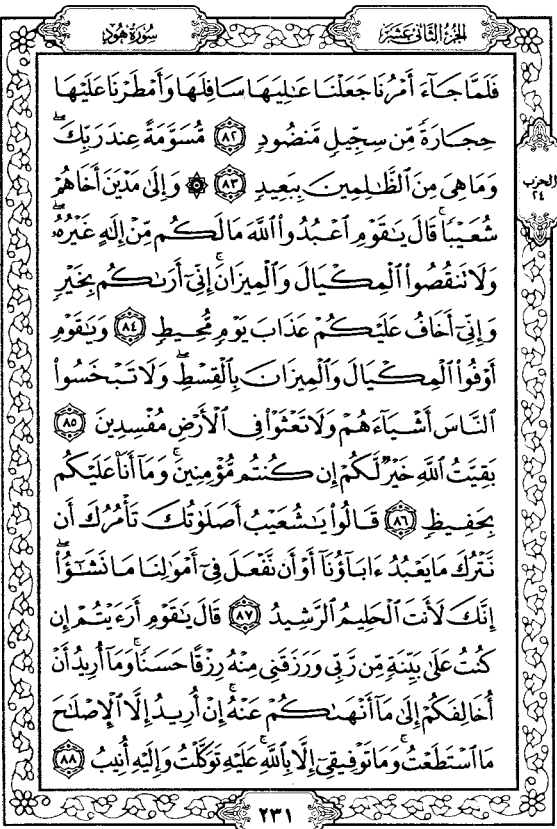 سُورَةُ هُودٍ
الجُزءُ الثَّانِي عَشَرَ
فَلَمَّا جَآءَ أَمْرُنَا جَعَلْنَا عَٰلِيَهَا سَافِلَهَا وَأَمْطَرْنَا عَلَيْهَا
حِجَارَةً مِّن سِجِّيلٍ مَّنضُودٍ ﴿٨٢﴾ مُّسَوَّمَةً عِندَ رَبِّكَۖ
وَمَا هِيَ مِنَ ٱلظَّٰلِمِينَ بِبَعِيدٍ ﴿٨٣﴾ ۞ وَإِلَىٰ مَدْيَنَ أَخَاهُمْ
شُعَيْبًاۚ قَالَ يَٰقَوْمِ ٱعْبُدُوا۟ ٱللَّهَ مَا لَكُم مِّنْ إِلَٰهٍ غَيْرُهُۥۖ
وَلَا تَنقُصُوا۟ ٱلْمِكْيَالَ وَٱلْمِيزَانَۚ إِنِّىٓ أَرَىٰكُم بِخَيْرٍ
وَإِنِّىٓ أَخَافُ عَلَيْكُمْ عَذَابَ يَوْمٍ مُّحِيطٍ ﴿٨٤﴾ وَيَٰقَوْمِ
أَوْفُوا۟ ٱلْمِكْيَالَ وَٱلْمِيزَانَ بِٱلْقِسْطِۖ وَلَا تَبْخَسُوا۟
ٱلنَّاسَ أَشْيَآءَهُمْ وَلَا تَعْثَوْا۟ فِى ٱلْأَرْضِ مُفْسِدِينَ ﴿٨٥﴾
بَقِيَّتُ ٱللَّهِ خَيْرٌ لَّكُمْ إِن كُنتُم مُّؤْمِنِينَۚ وَمَآ أَنَا۠ عَلَيْكُم
بِحَفِيظٍ ﴿٨٦﴾ قَالُوا۟ يَٰشُعَيْبُ أَصَلَوٰتُكَ تَأْمُرُكَ أَن
نَّتْرُكَ مَا يَعْبُدُ ءَابَآؤُنَآ أَوْ أَن نَّفْعَلَ فِىٓ أَمْوَٰلِنَا مَا نَشَٰٓؤُا۟ۖ
إِنَّكَ لَأَنتَ ٱلْحَلِيمُ ٱلرَّشِيدُ ﴿٨٧﴾ قَالَ يَٰقَوْمِ أَرَءَيْتُمْ إِن
كُنتُ عَلَىٰ بَيِّنَةٍ مِّن رَّبِّى وَرَزَقَنِى مِنْهُ رِزْقًا حَسَنًاۚ وَمَآ أُرِيدُ أَنْ
أُخَالِفَكُمْ إِلَىٰ مَآ أَنْهَىٰكُمْ عَنْهُۚ إِنْ أُرِيدُ إِلَّا ٱلْإِصْلَٰحَ
مَا ٱسْتَطَعْتُۚ وَمَا تَوْفِيقِىٓ إِلَّا بِٱللَّهِۚ عَلَيْهِ تَوَكَّلْتُ وَإِلَيْهِ أُنِيبُ ﴿٨٨﴾
الحزب
٢٤
٢٣١